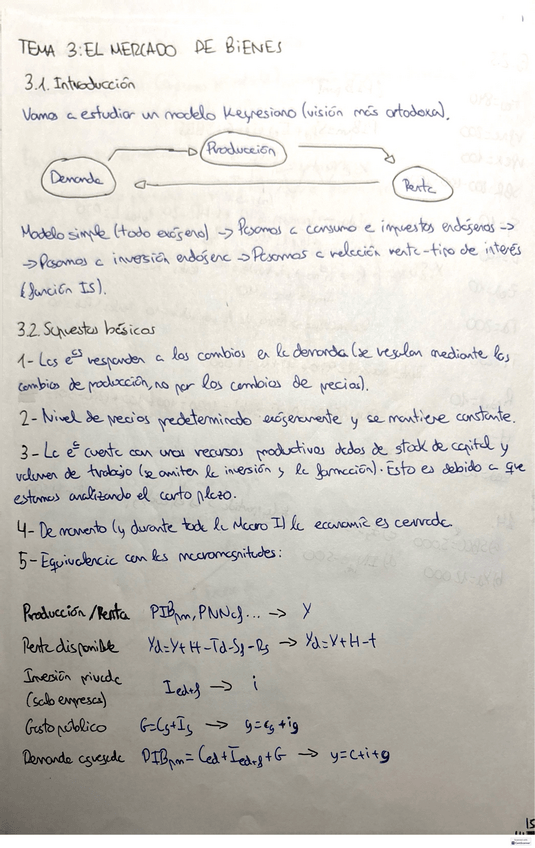 TEMA 3: EL MERCADO DE BIENES
3.1. Introducción
Vamos a estudiar un modelo Keynesiano (visión más ortodoxa).
Producción
Demanda
Renta
Modelo simple (todo exógeno) -> Pasamos a consumo e impuestos endógenos ->
-> Pasamos a inversión endógena -> Pasamos a relación renta-tipo de interés
(función IS).
3.2. Supuestos básicos
1- Las eᶜˢ responden a los cambios en la demanda (se regulan mediante los
cambios de producción, no por los cambios de precios).
2- Nivel de precios predeterminado exógenamente y se mantiene constante.
3- La eᶜ cuenta con unos recursos productivos dados de stock de capital y
volumen de trabajo (se omiten la inversión y la formación). Esto es debido a que
estamos analizando el corto plazo.
4- De momento (y durante toda la Macro I) la economía es cerrada.
5- Equivalencia con las macromagnitudes:
Producción/Renta PIBpm, PNNcf... -> Y
Renta disponible Yd=Y+H-Td-Sf-Rs -> Yd=Y+H-t
Inversión privada
(solo empresas) Ied+f -> i
Gasto público G=Cg+Ig -> g=cg+ig
Demanda agregada DIBpm=Ced+Ied+f+G -> y=c+i+g
15